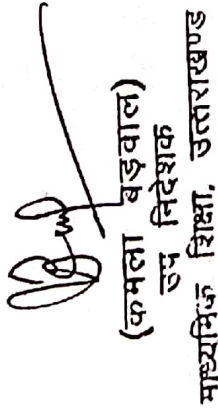 (कमला बड़वाल)
उप निदेशक
माध्यमिक शिक्षा, उत्तराखण्ड